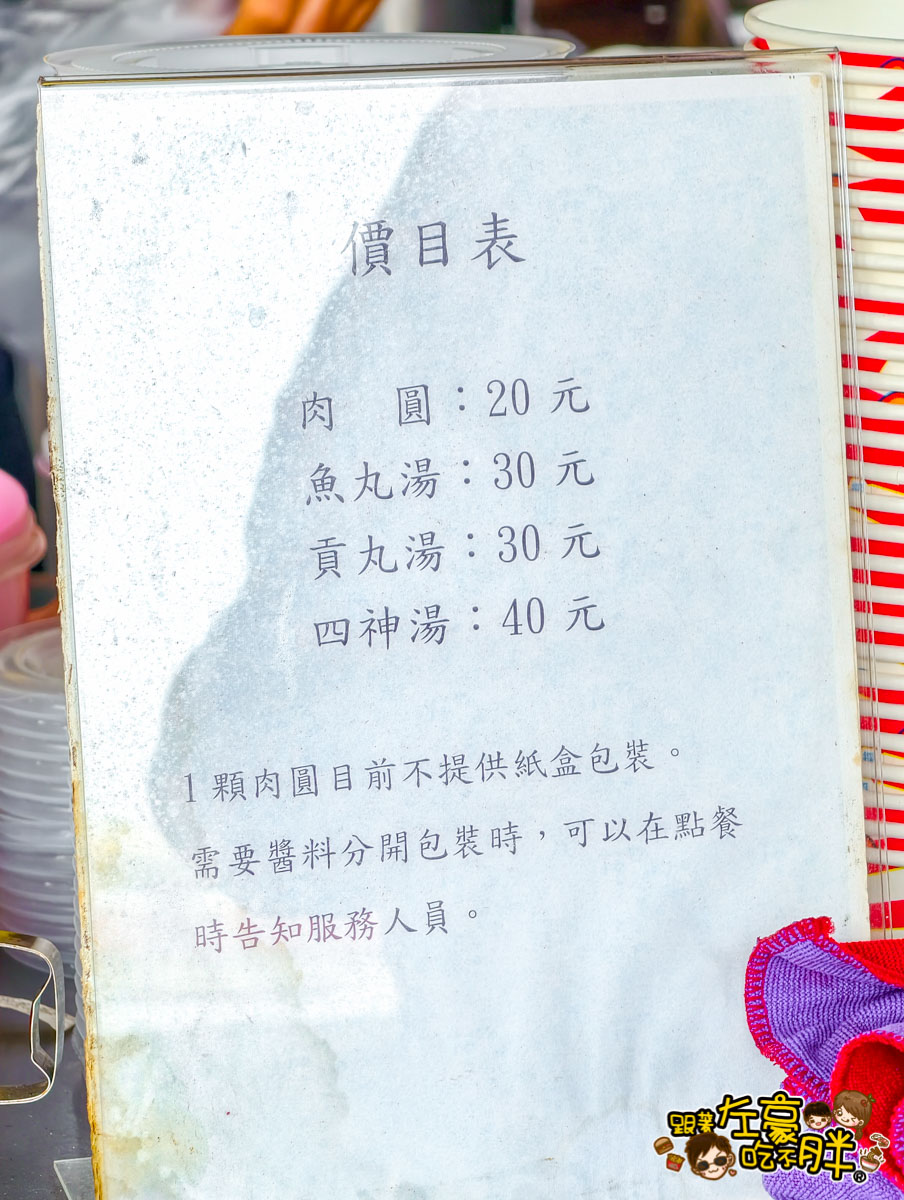 價目表
肉　圓：20 元
魚丸湯：30 元
貢丸湯：30 元
四神湯：40 元
1 顆肉圓目前不提供紙盒包裝。
需要醬料分開包裝時，可以在點餐
時告知服務人員。
跟著左豪
吃不胖®